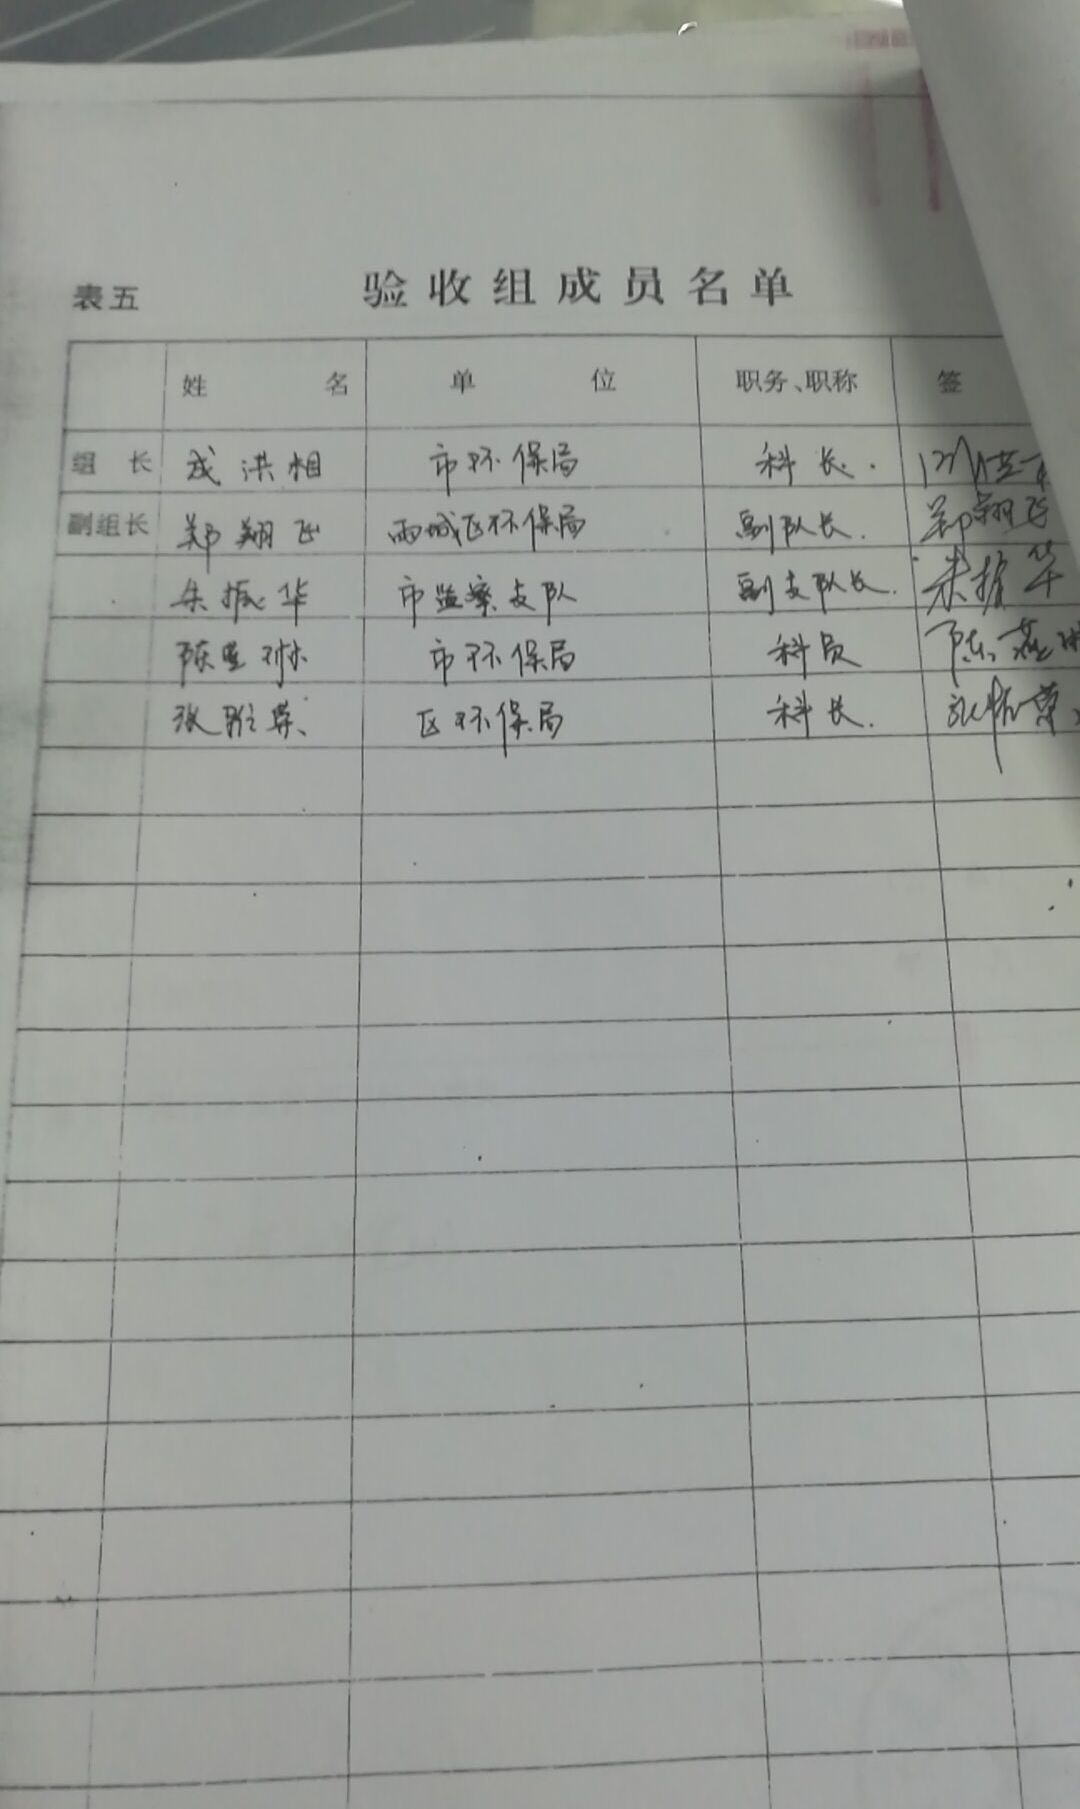 表五 验收组成员名单
姓名 单位 职务、职称 签
组长 成洪相 市环保局 科长.
副组长 郑翔飞 雨城区环保局 副队长. 郑翔飞
朱振华 市监察支队 副支队长. 朱振华
陈 市环保局 科员 陈
张 区环保局 科长.